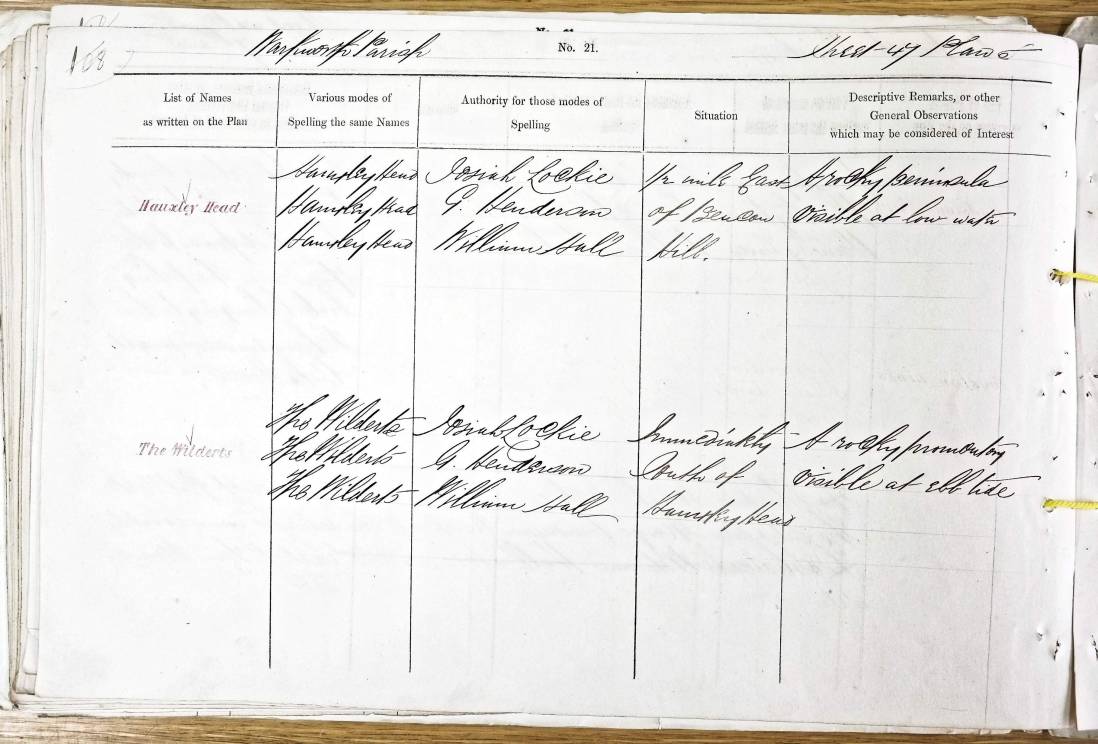 168
Warkworth Parish No. 21. Sheet 47 Plan 5
List of Names
as written on the Plan
Various modes of
Spelling the same Names
Authority for those modes of
Spelling
Situation
Descriptive Remarks, or other
General Observations
which may be considered of Interest
Hauxley Head
Hauxley Head Josiah Lockie 1/2 mile East A rocky peninsula
Hauxley Head G. Henderson of Beacon visible at low water
Hauxley Head William Hall Hill.
The Wilderts
The Wilderts Josiah Lockie Immediately A rocky promontory
The Wilderts G. Henderson South of visible at ebb tide
The Wilderts William Hall Hauxley Head